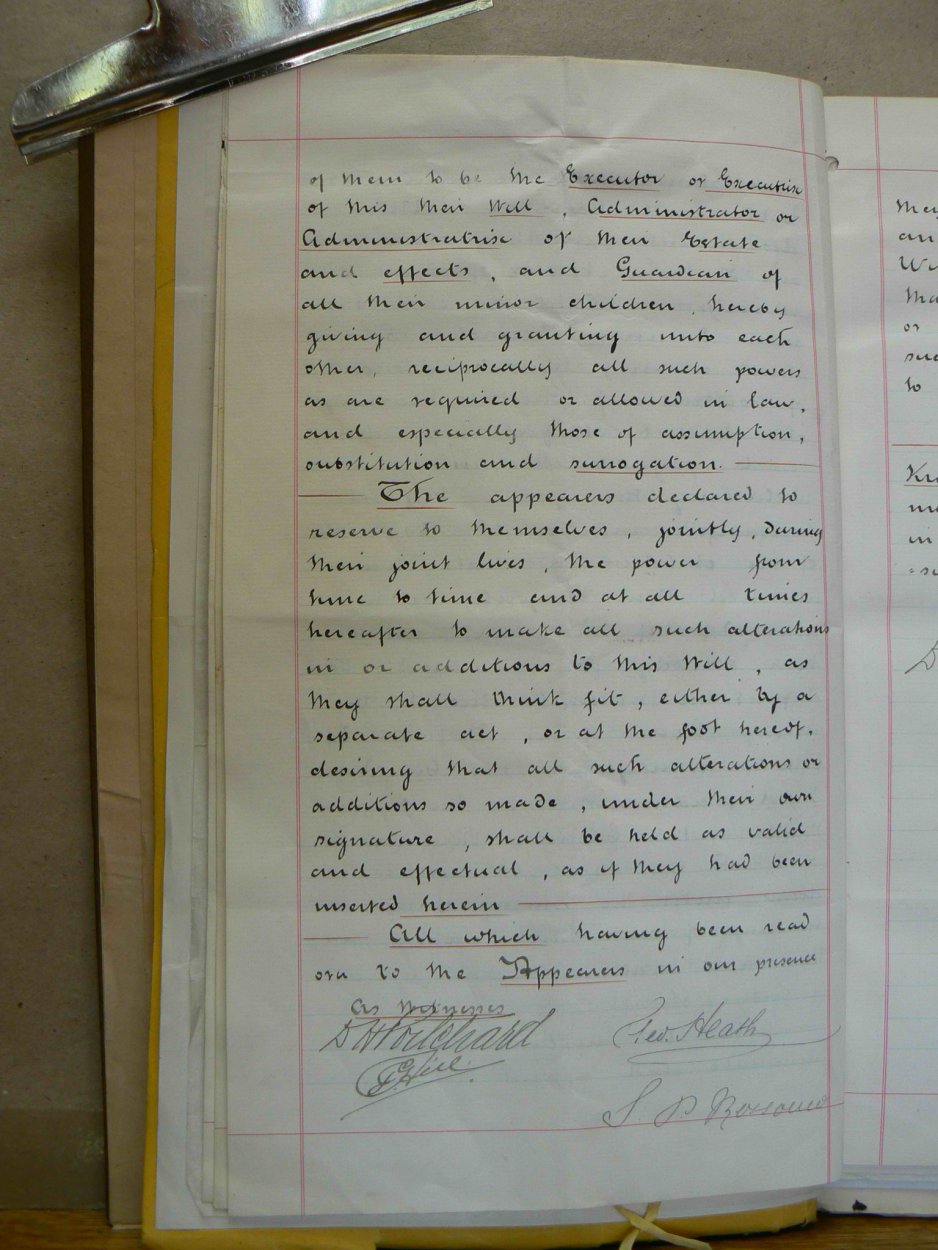 of them to be the Executor or Executrix
of this their Will, Administrator or
Administratrix of their Estate
and effects, and Guardian of
all their minor children, hereby
giving and granting unto each
other, reciprocally all such powers
as are required or allowed in law,
and especially those of assumption,
substitution and surrogation.
The appearers declared to
reserve to themselves, jointly, during
their joint lives, the power from
time to time and at all times
hereafter to make all such alterations
in or additions to this Will, as
they shall think fit, either by a
separate act, or at the foot hereof,
desiring that all such alterations or
additions so made, under their own
signature, shall be held as valid
and effectual, as if they had been
inserted herein
All which having been read
over to the Appearers in our presence
As Witnesses
Geo. Heath
they
an
or
to
in